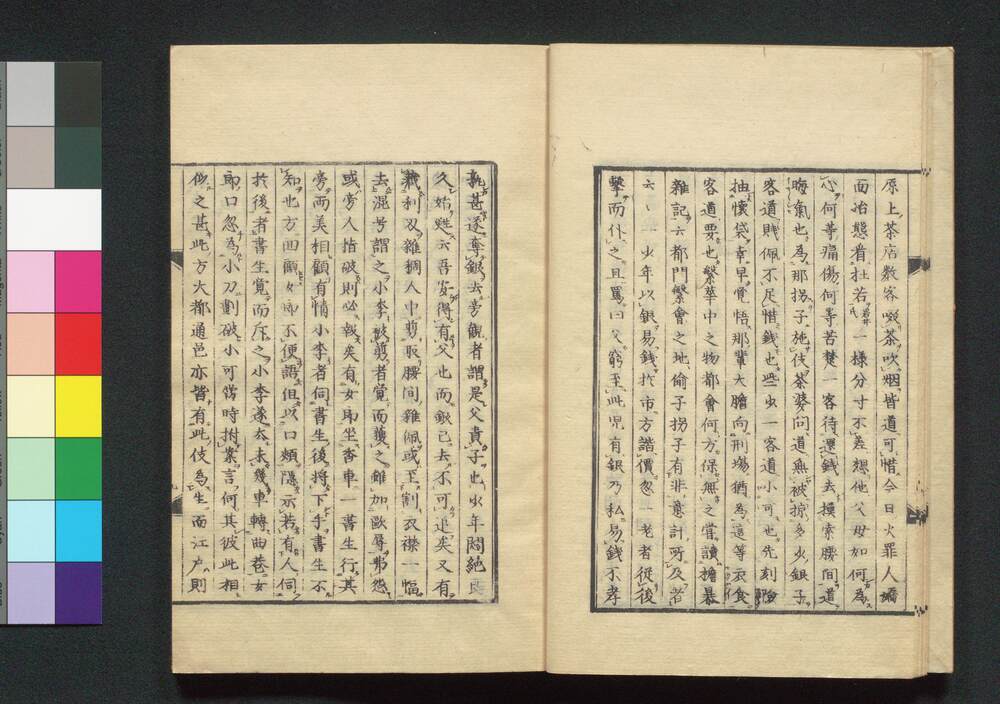 原上茶店數客啜茶吹烟皆道可惜今日火罪人嬌
面冶態看杜若一樣分寸不差想他父母如何為
心何等痛傷何等苦楚一客待還錢去摸索腰間道
晦氣也為那拐子施伎茶婆問道無被掠多少銀子
客道賎佩不足惜錢也些虫一客道小可也先刻
抽懷袋幸早覺悟那輩大膽向刑塲猶為這等衣食
客道要也繫華中之物都會何方保無之嘗讀擔暴
雜記云都門繫會之地偷子拐子有非意計所及若
云一少年以銀易錢於市方諧價忽一老者從後
擊而仆之且罵曰父窮至此児有銀乃私易錢不孝
孰甚遂奪銀去旁観者謂是父責子也少年悶絶良
久始甦云吾安得有父也而銀已去不可追矣又有
裁利刄雜稠人中剪取腰間雜佩或至割衣襟一幅
去混号謂之小李被剪者覺而獲之雖加毆辱弗怨
或旁人指破則必報矣有女郎坐香車一書生行其
旁而美相顧有情小李者伺書生後將下手書生不
知也方回顧女郎不便語但以口頰隱示若有人伺
於後者書生覺而斥之小李遂去未幾車轉曲巷女
郎口忽為小刀劃破小可當時拊案言何其彼此相
似之甚此方大都通邑亦皆有此伎為生而江戸則